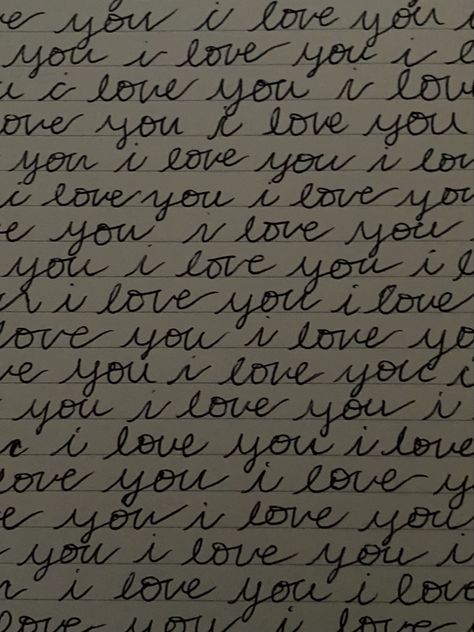 e you i love you i
you i love you i l
u i love you i lov
ove you i love you
you i love you i lov
i love you i love you
e you i love you
you i love you i l
u i love you i love
love you i love yo
ve you i love you i
you i love you i
u i love you i love
love you i love y
e you i love you
you i love you i
u i love you i love
love you i love